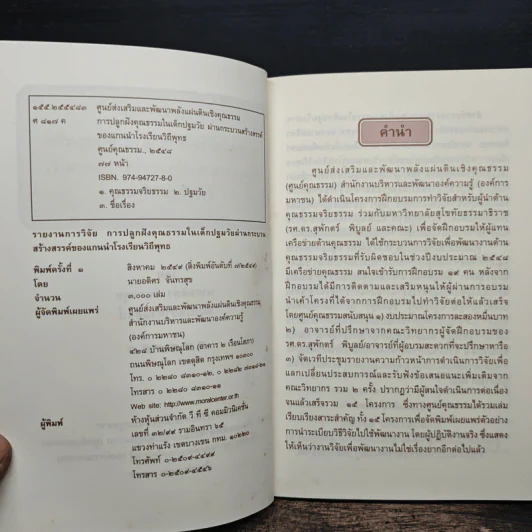 ๑๕๕.๒๕๕๔๘๓ ศูนย์ส่งเสริมและพัฒนาพลังแผ่นดินเชิงคุณธรรม
ศ ๘๑๗ ค การปลูกฝังคุณธรรมในเด็กปฐมวัย ผ่านกระบวนสร้างสรรค์
ของแกนนำโรงเรียนวิถีพุทธ
ศูนย์คุณธรรม., ๒๕๔๘
๗๗ หน้า
ISBN. 974-94727-8-0
๑. คุณธรรมจริยธรรม ๒. ปฐมวัย
๓. ชื่อเรื่อง
รายงานการวิจัย การปลูกฝังคุณธรรมในเด็กปฐมวัยผ่านกระบวน
สร้างสรรค์ของแกนนำโรงเรียนวิถีพุทธ
พิมพ์ครั้งที่ ๑ สิงหาคม ๒๕๔๙
โดย นายอดิศร จันทรสุข
จำนวน ๓,๐๐๐ เล่ม
ผู้จัดพิมพ์เผยแพร่ ศูนย์ส่งเสริมและพัฒนาพลังแผ่นดินเชิงคุณธรรม
สำนักงานบริหารและพัฒนาองค์ความรู้
(องค์การมหาชน)
๔๒๘ บ้านพิษณุโลก (อาคาร ๒ เรือนโสภา)
ถนนพิษณุโลก เขตดุสิต กรุงเทพฯ ๑๐๓๐๐
โทรสาร ๐ ๒๒๘๐ ๘๓๑๐-๑๑
Web site: http://www.moralcenter.or.th
ผู้พิมพ์ ห้างหุ้นส่วนจำกัด วี ที ซี คอมมิวนิเคชั่น
เลขที่ ๓๒/๙๙ รามอินทรา ๖๕
แขวงท่าแร้ง เขตบางเขน กทม. ๑๐๒๒๐
โทรศัพท์ ๐-๒๕๐๙-๔๔๙๙
โทรสาร ๐-๒๕๐๙-๔๕๔๖
คำนำ
ศูนย์ส่งเสริมและพัฒนาพลังแผ่นดินเชิงคุณธรรม
(ศูนย์คุณธรรม) สำนักงานบริหารและพัฒนาองค์ความรู้ (องค์การ
มหาชน) ได้ดำเนินโครงการฝึกอบรมการทำวิจัยสำหรับผู้นำด้าน
คุณธรรมจริยธรรม ร่วมกับมหาวิทยาลัยสุโขทัยธรรมาธิราช
(รศ.ดร.สุพักตร์ พิบูลย์ และคณะ) เพื่อจัดฝึกอบรมให้ผู้แทน
เครือข่ายด้านคุณธรรม ได้ใช้กระบวนการวิจัยเพื่อพัฒนางานด้าน
คุณธรรมจริยธรรมที่รับผิดชอบในช่วงปีงบประมาณ ๒๕๔๘
มีเครือข่ายคุณธรรม สนใจเข้ารับการฝึกอบรม ๑๙ คน หลังจาก
ฝึกอบรมได้มีการติดตามและสนับสนุนให้ผู้ผ่านการอบรม
นำเค้าโครงที่ได้จากการฝึกอบรมไปทำวิจัยต่อให้แล้วเสร็จ
โดยศูนย์คุณธรรมสนับสนุน ๑) งบประมาณโครงการละสองหมื่นบาท
๒) อาจารย์ที่ปรึกษาจากคณะวิทยากรผู้จัดฝึกอบรมของ
รศ.ดร.สุพักตร์ พิบูลย์/อาจารย์ที่ผู้อบรมสะดวกที่จะปรึกษาหารือ
๓) จัดเวทีประชุมรายงานความก้าวหน้าการดำเนินการวิจัยเพื่อ
แลกเปลี่ยนประสบการณ์และรับฟังข้อเสนอแนะเพิ่มเติมจาก
คณะวิทยากร รวม ๒ ครั้ง ปรากฏว่ามีผู้สนใจดำเนินการต่อเนื่อง
จนแล้วเสร็จรวม ๑๕ โครงการ ซึ่งทางศูนย์คุณธรรมได้รวมเล่ม
เรียบเรียงสาระสำคัญ ทั้ง ๑๕ โครงการเพื่อจัดพิมพ์เผยแพร่ตัวอย่าง
การนำระเบียบวิธีวิจัยไปใช้พัฒนางาน โดยผู้ปฏิบัติงานจริง ซึ่งแสดง
ให้เห็นว่างานวิจัยเพื่อพัฒนางานไม่ใช่เรื่องยากอีกต่อไปแล้ว